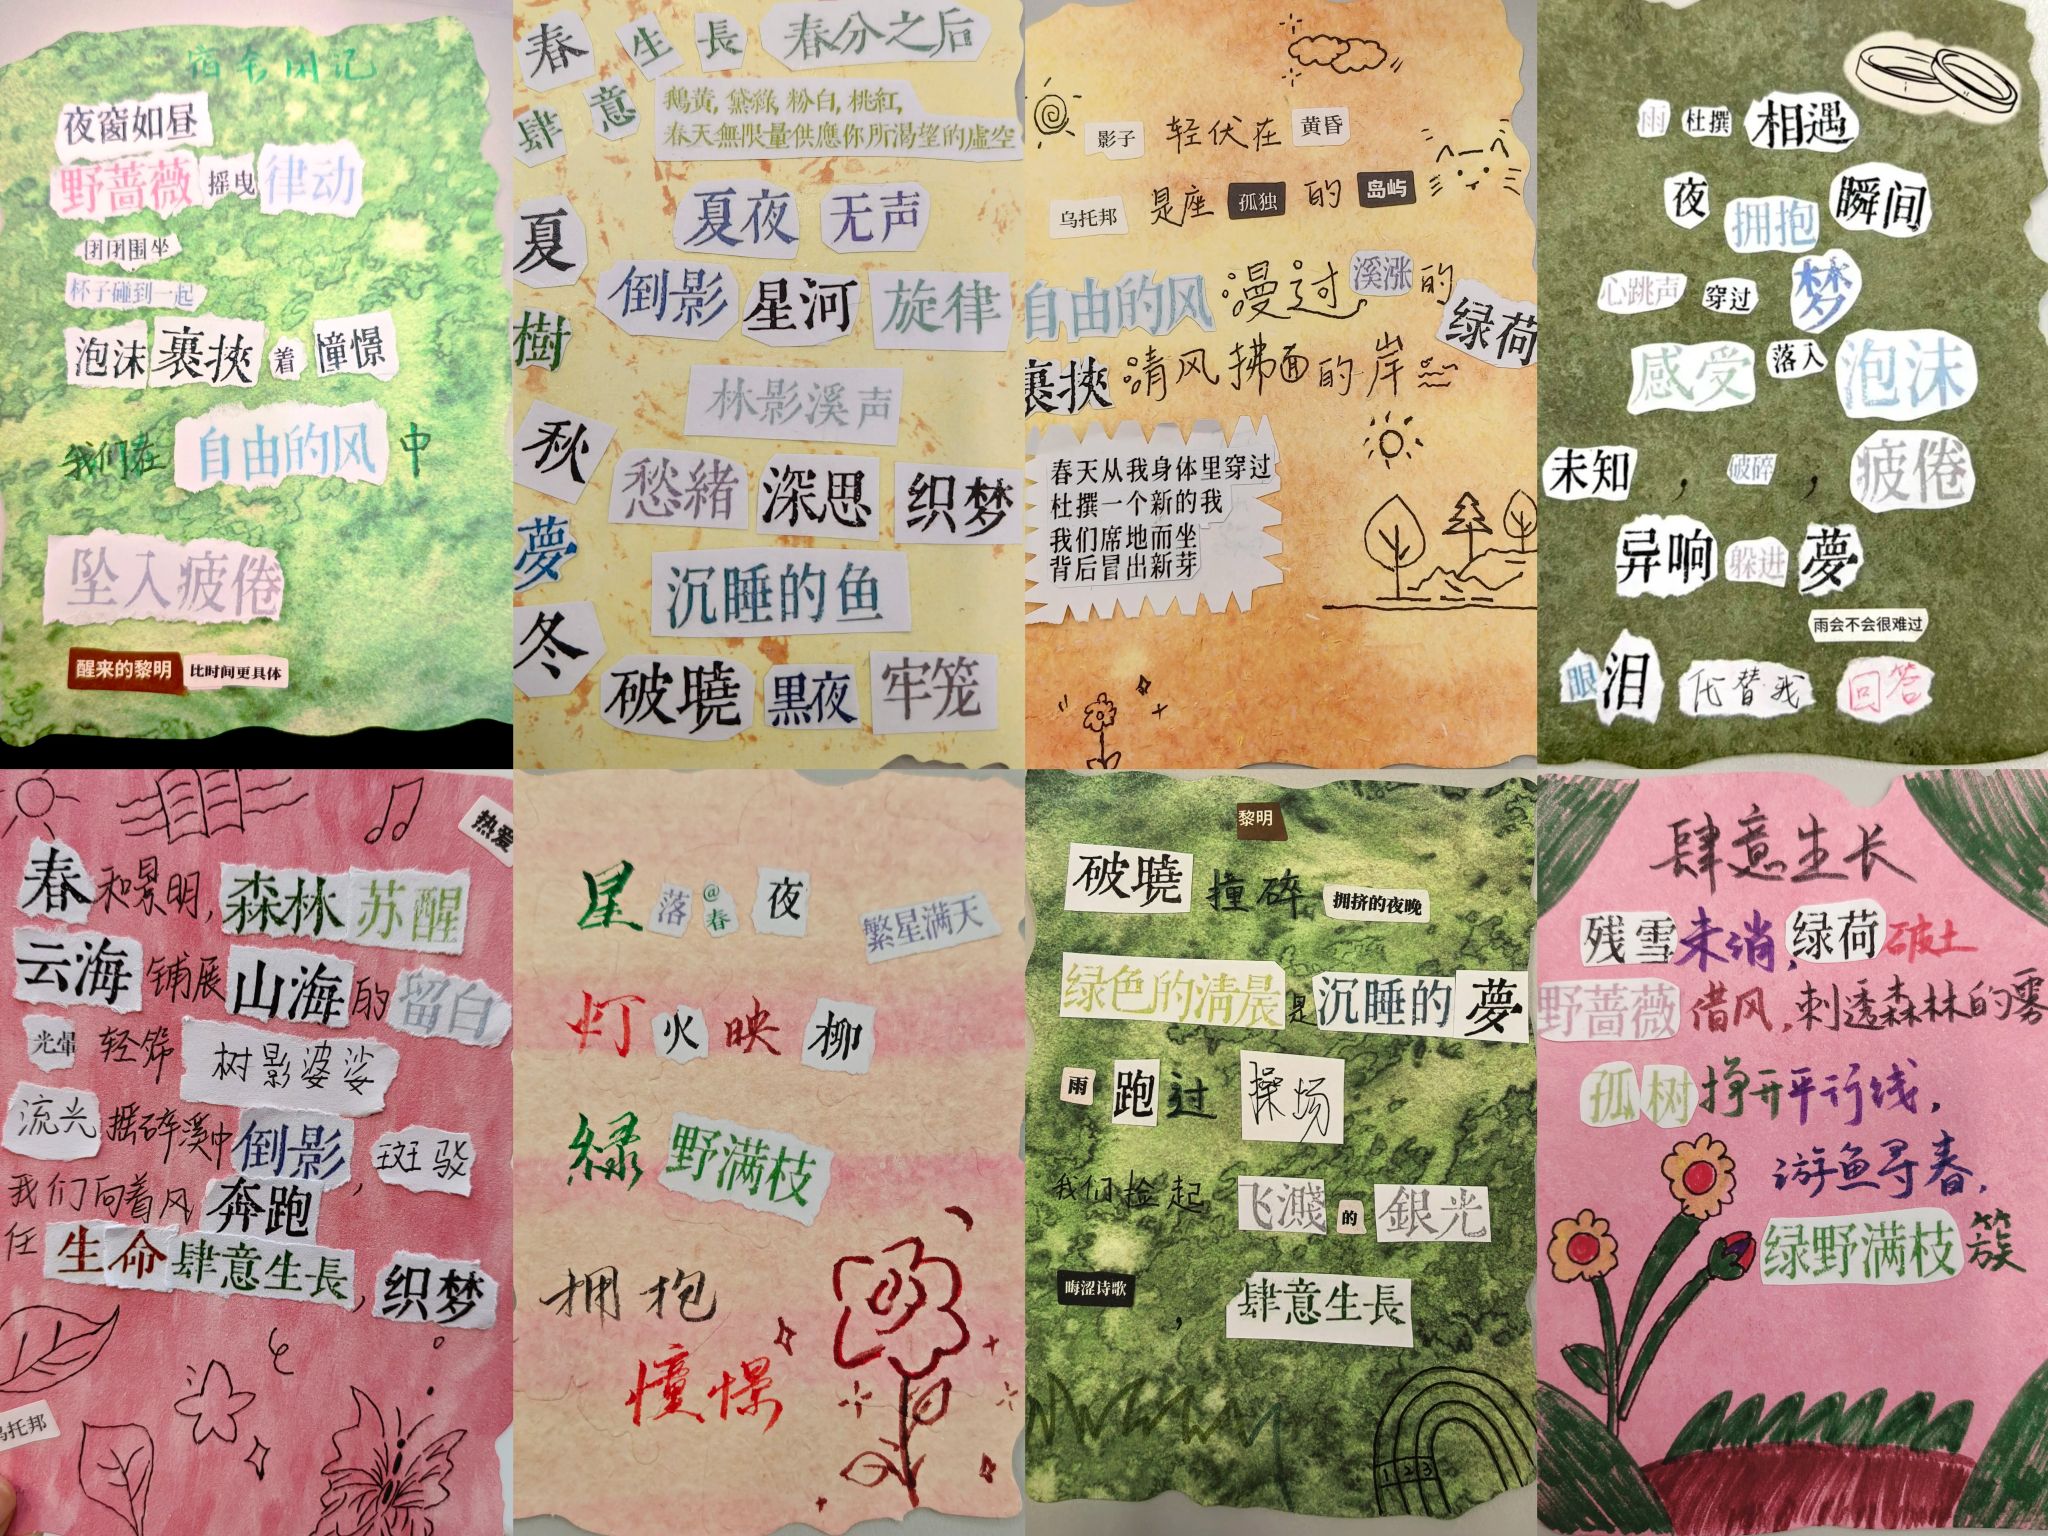 宿舍闭记
夜窗如昼
野蔷薇摇曳律动
团团围坐
杯子碰到一起
泡沫裹挾着憧憬
我们在自由的风中
坠入疲倦
醒来的黎明 比时间更具体
春 生長 春分之后
肆意 鵝黃, 黛綠, 粉白, 桃紅,
春天無限量供應你所渴望的虛空
夏 夏夜 无声
倒影 星河 旋律
樹
林影溪声
秋 愁緒 深思 织梦
夢 沉睡的鱼
冬 破曉 黑夜 牢笼
影子 轻伏在 黄昏
乌托邦 是座 孤独 的 岛屿
自由的风 漫过 溪涨 的 绿荷
裹挾 清风拂面的岸
春天从我身体里穿过
杜撰一个新的我
我们席地而坐
背后冒出新芽
雨 杜撰 相遇
夜 拥抱 瞬间
心跳声 穿过 梦
感受 落入 泡沫
未知, 破碎, 疲倦
异响 躲进 夢
雨会不会很难过
眼泪 代替我 回答
热爱
春和景明, 森林苏醒
云海铺展山海的留白
光晕 轻筛 树影婆娑
流光 摇碎溪中倒影, 斑驳
我们向着风奔跑
任生命肆意生長, 织梦
乌托邦
星落@春夜 繁星满天
灯火映柳
緑野满枝
拥抱
憧憬
黎明
破曉 撞碎 拥挤的夜晚
绿色的清晨是沉睡的夢
雨跑过操场
我们捡起飞濺的銀光
晦涩诗歌, 肆意生長
1 2 3
肆意生长
残雪未消, 绿荷破土
野蔷薇借风, 刺透森林的雾
孤树挣开平行线,
游鱼寻春,
绿野满枝簇